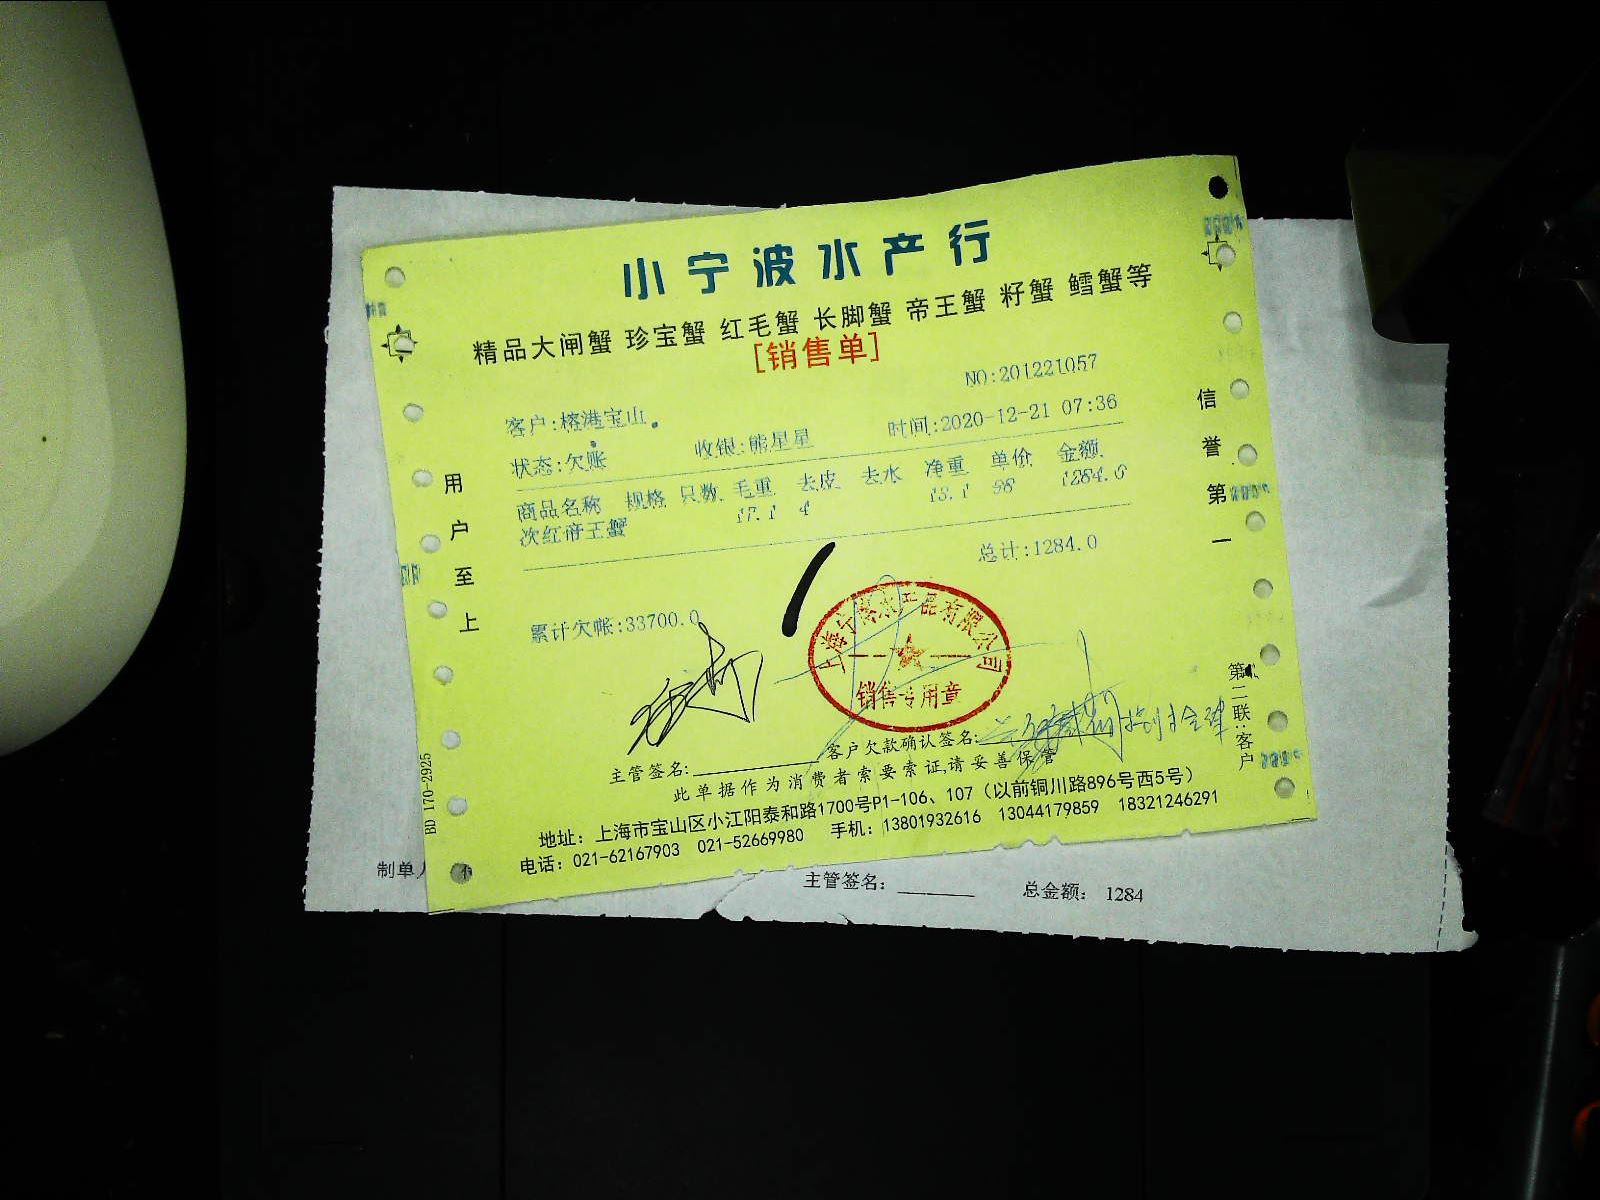 小宁波水产行
精品大闸蟹 珍宝蟹 红毛蟹 长脚蟹 帝王蟹 籽蟹 鳕蟹等
[销售单]
NO:201221057
客户:榕港宝山
时间:2020-12-21 07:36
状态:欠账
收银:熊星星
商品名称 规格 只数 毛重 去皮 去水 净重 单价 金额
次红帝王蟹 17.1 4 13.1 98 1284.0
总计:1284.0
累计欠帐:33700.0
用户至上
信誉第一
第二联:客户
销售专用章
客户欠款确认签名:
主管签名:
此单据作为消费者索要索证,请妥善保管
地址: 上海市宝山区小江阳泰和路1700号P1-106、107（以前铜川路896号西5号）
电话: 021-62167903 021-52669980 手机: 13801932616 13044179859 18321246291
BD 170-2925
制单人
主管签名:
总金额: 1284